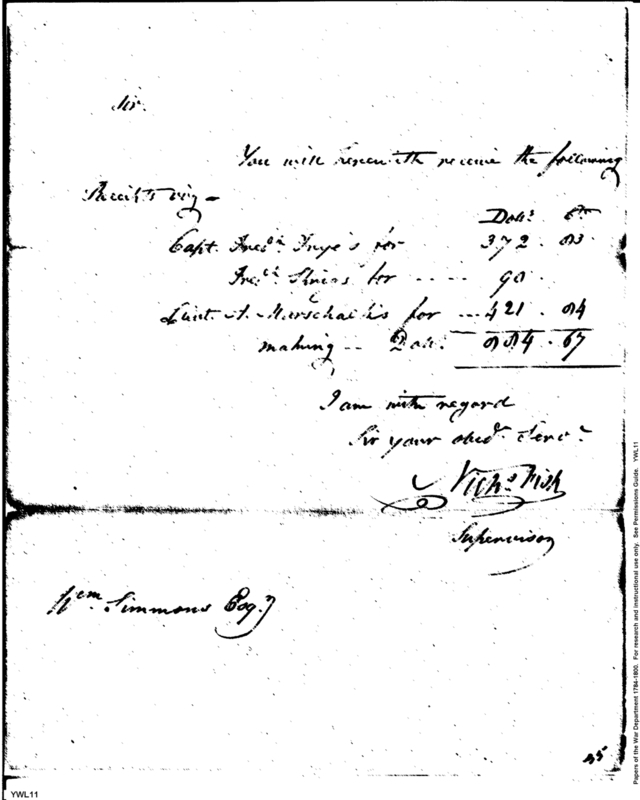 Sir.
You will herewith receive the following
Receipts viz.
Dolls. Cts
Capt. Fredk. Frye's for 372 . 83
Fredk. for ---- 90
Lieut. A. Marschalk's for ... 421 . 84
making -- Dolls. 884 . 67
I am with regard
Sir your obedt. Servt.
Nichs. Fish
Supervisor
Wm. Simmons Esqr.
Papers of the War Department 1784-1800. For research and instructional use only. See Permissions Guide. YWL11
YWL11